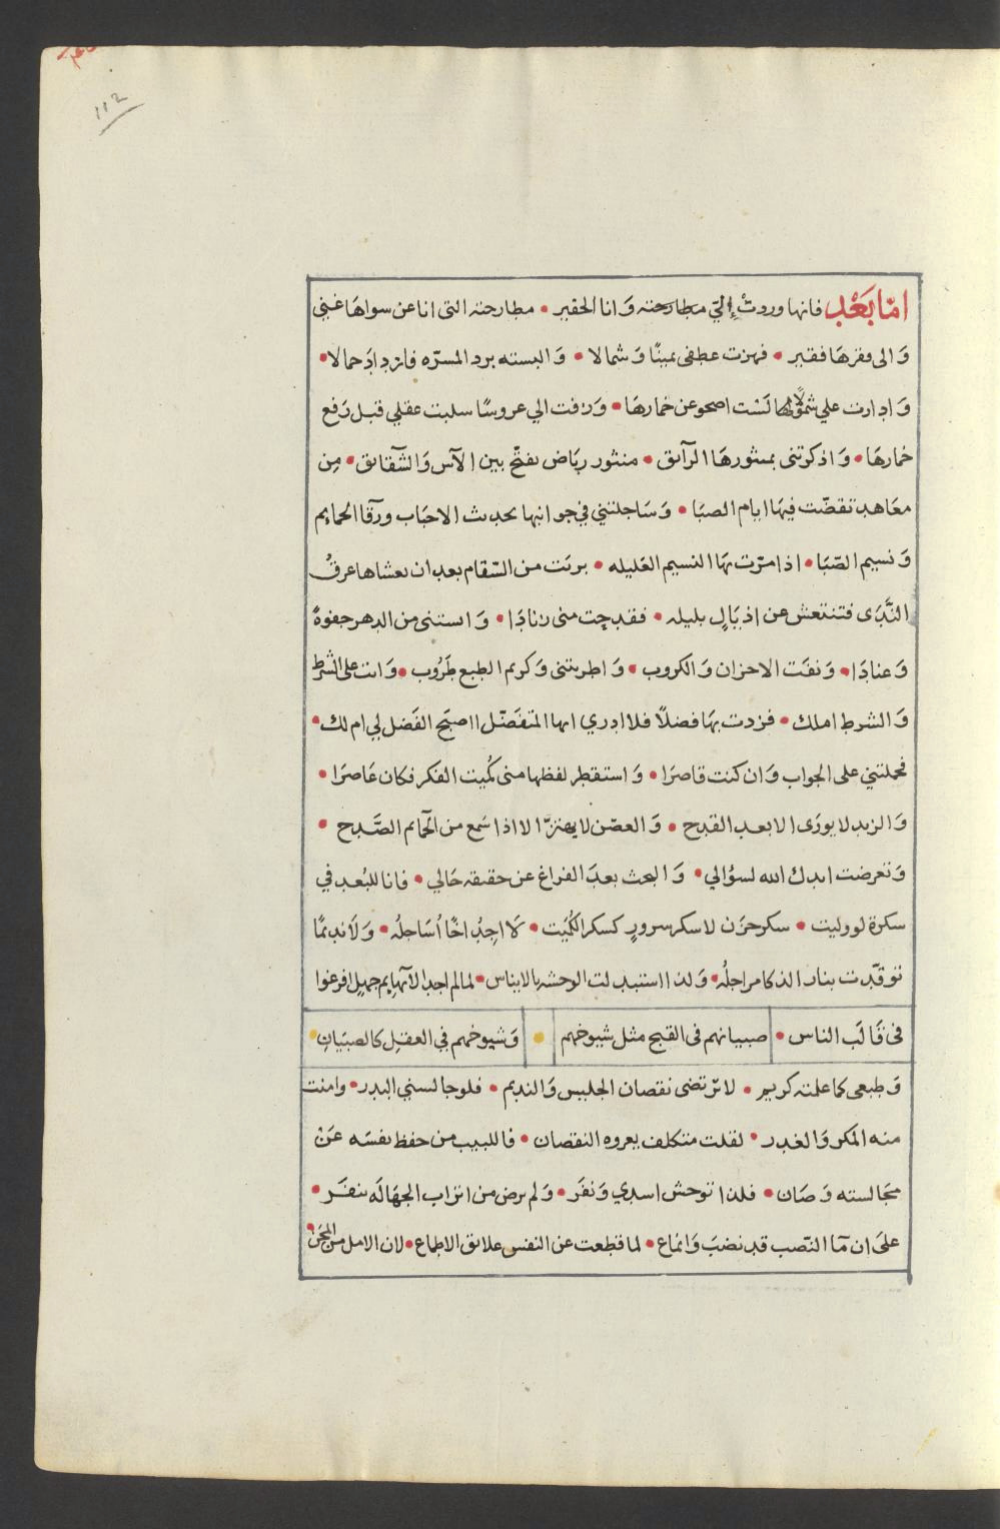 ١١٢
امّا بَعْد فانها وردتْ إليّ مطارحته وَانا الحقير • مطارحته التى انا عن سواهَا غنى
وَالى فقرهَا فقير • فهزت عطفى يمينًا وَشمالا • وَالبسته برد المسرّه فازدادَ جمالا •
وَادارت علي شمولًا لها لَسْت اصحو عن خمارهَا • وَزفت الي عروسًا سلبت عقلي قبل رَفع
خمارهَا • وَاذكرتنى بمنثورهَا الرآئق • منثور ريَاض تفتّح بين الآس وَالشقآئق • مِن
معَاهد تقضّت فيهَا ايام الصبَا • وَسَاجلتني في جوانبها بحديث الاحبَاب ورآقا الحمايم
وَنسيم الصّبَا • اذا مرّت بهَا النسيم العَليله • برئت من السّقام بعد ان يغشاها عرفُ
النَّدَى فتنتعش عن اذيَالٍ بليله • فقدحت منى زنادَا • وَانستنى من الدهر جفوةً
وَعنادَا • وَنفَت الاحزان وَالكروب • وَاطربتنى وَكريم الطبع طَرُوب • وَانت على الشرط
وَالشرط املك • فزدت بهَا فضلًا فلا ادري ايها المتفضّل ااصبَح الفَضل لي ام لك •
فحملتني على الجواب وَان كنت قاصرَا • وَاستقطر لفظها منى كُميت الفكر فكان عَاصرَا •
وَالزند لا يورَى الا بعد القدح • وَالغصْن لا يهتزّ الا اذا سَمع من الحَآيم الصَّدح •
وَتعرضت ايدك الله لسؤالي • وَالبحث بعدَ الفراغ عن حقيقة حَالي • فانا للبُعد في
سكرة لووليت • سكر حزَن لا سكر سرورٍ كسكر الكُميَت • لَا اجِدُ اخًا اُسَاجلُه • وَلَا نديمًا
توقّدت بنار الذكا مراجلُه • وَلذا استبدلت الوحشة بالايناس • لما لم اجد الا بهايم جميل افرغوا
فى قَالَب الناس • صبيانهم فى القبح مثل شيوخهم • وَشيوخهم في العقل كالصبيَان •
وَطبعى كما علمته كريم • لا ترتضى نقصان الجليس وَالنديم • فلو جالسني البدر • وامنت
منه المكر وَالغدر • لقلت متكلف يعروه النقصان • فاللبيب من حفظ نفسَه عَنْ
مجَالسته وَصَان • فلذا توحش اسدي وَنفَر • وَلم يرض من اتراب الجهَالَه بنفَر •
علىَ ان مَآ النّصب قد نضبَ وَانماع • لما قطعت عن النفس علائق الاطماع • لان الامل من المحَن •